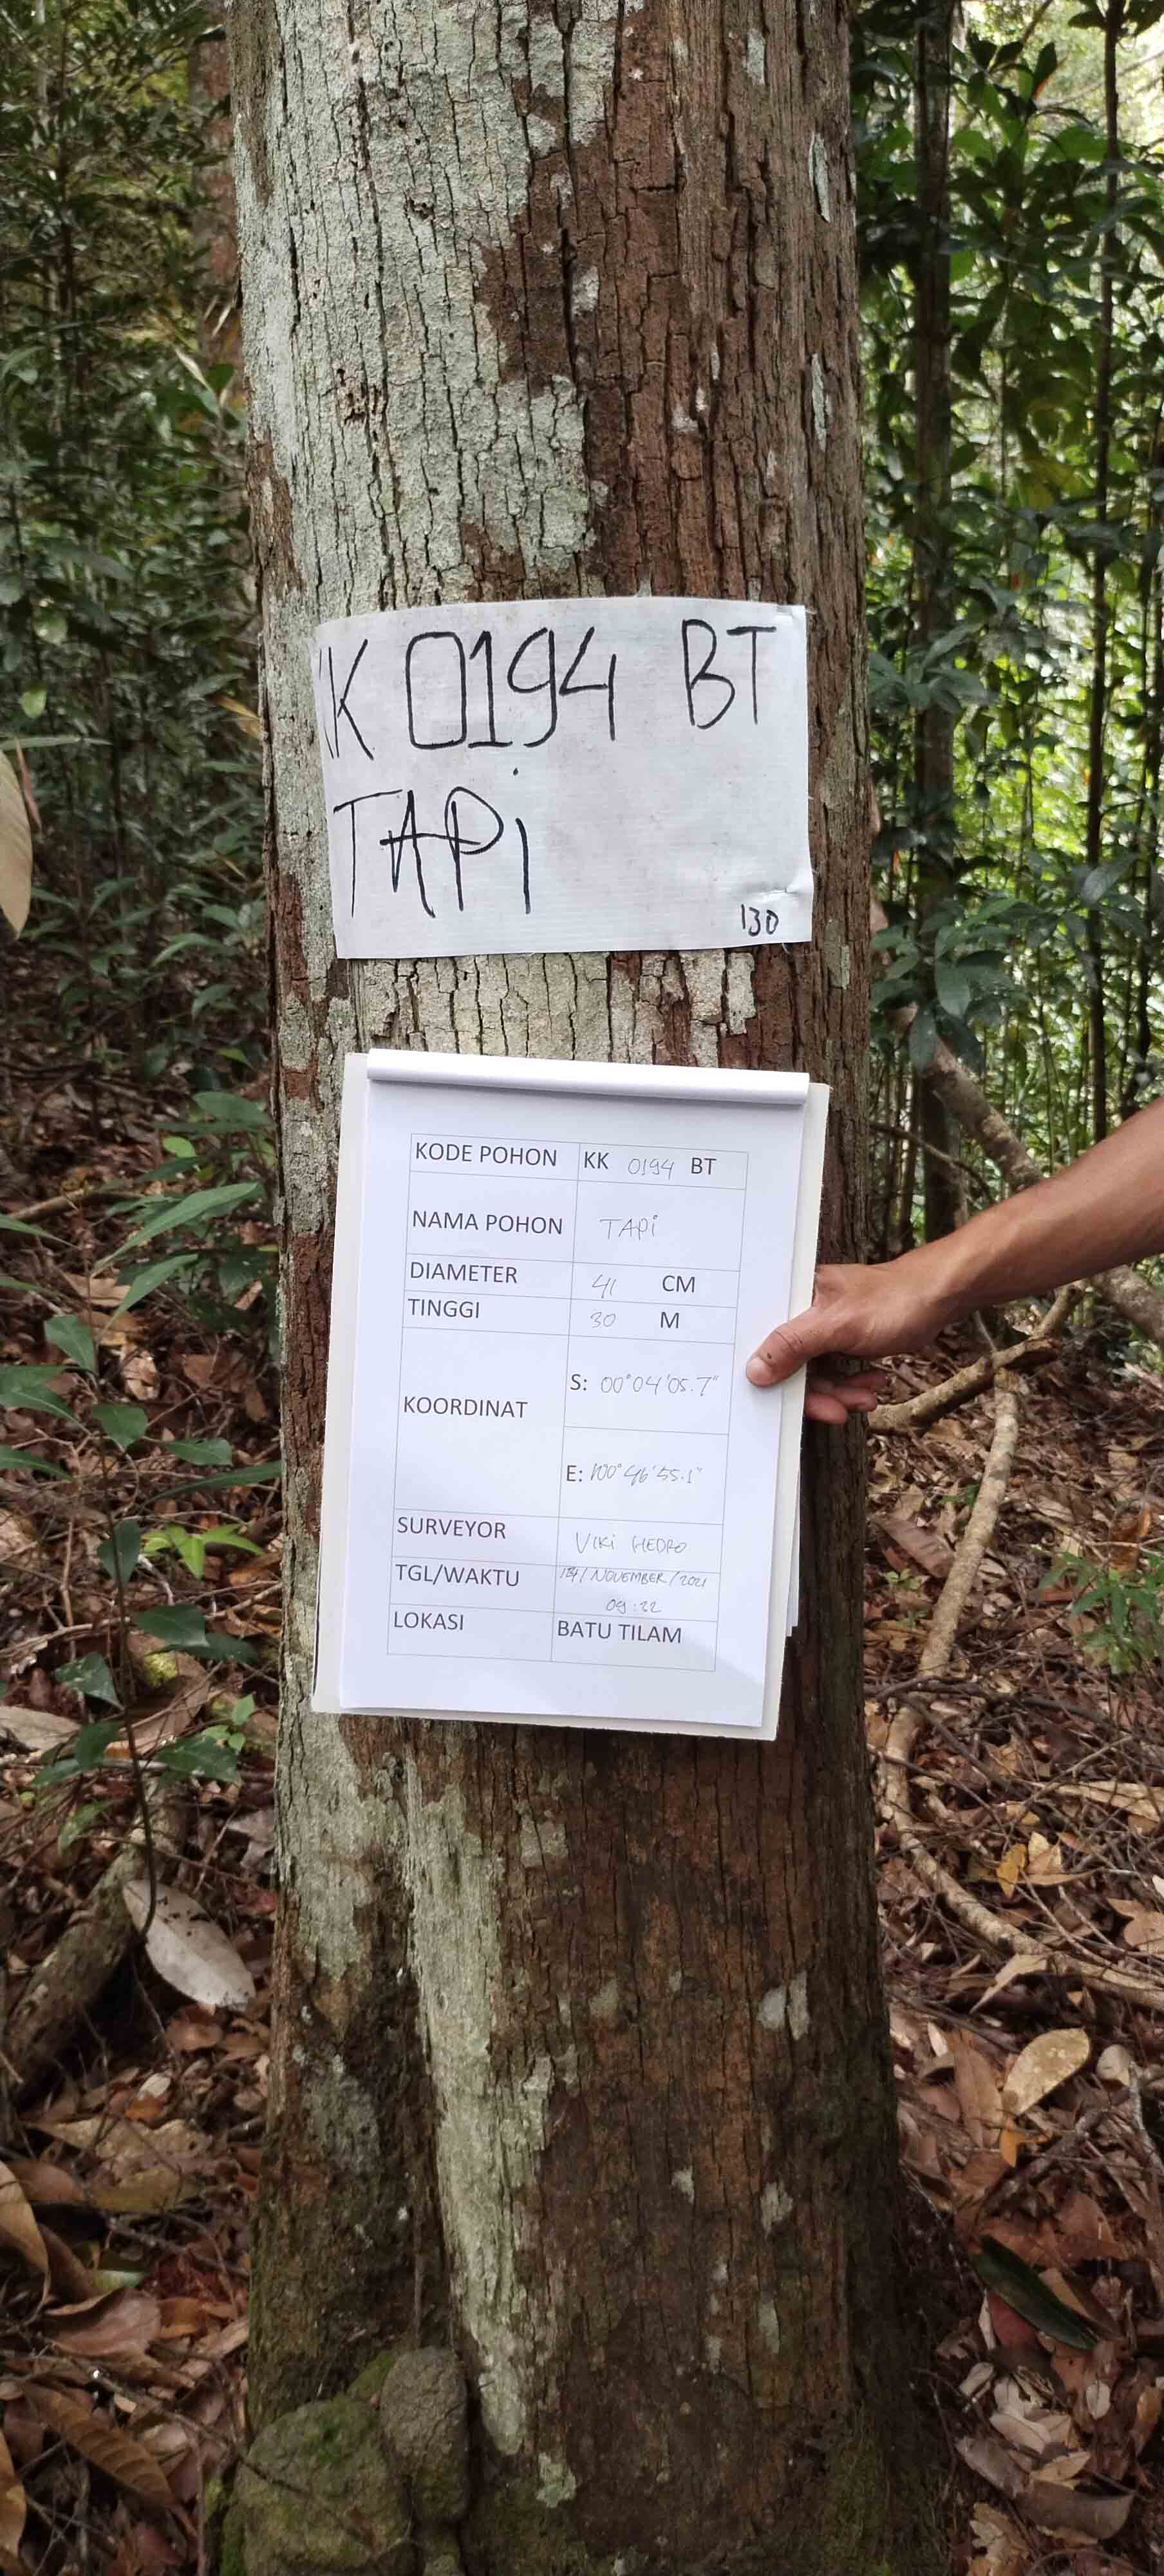 KK 0194 BT
TAPi
130
KODE POHON KK 0194 BT
NAMA POHON TAPi
DIAMETER 41 CM
TINGGI 30 M
KOORDINAT S: 00°04'05.7"
E: 100°46'55.1"
SURVEYOR VIKI HEDRO
TGL/WAKTU /NOVEMBER/2021
09:22
LOKASI BATU TILAM